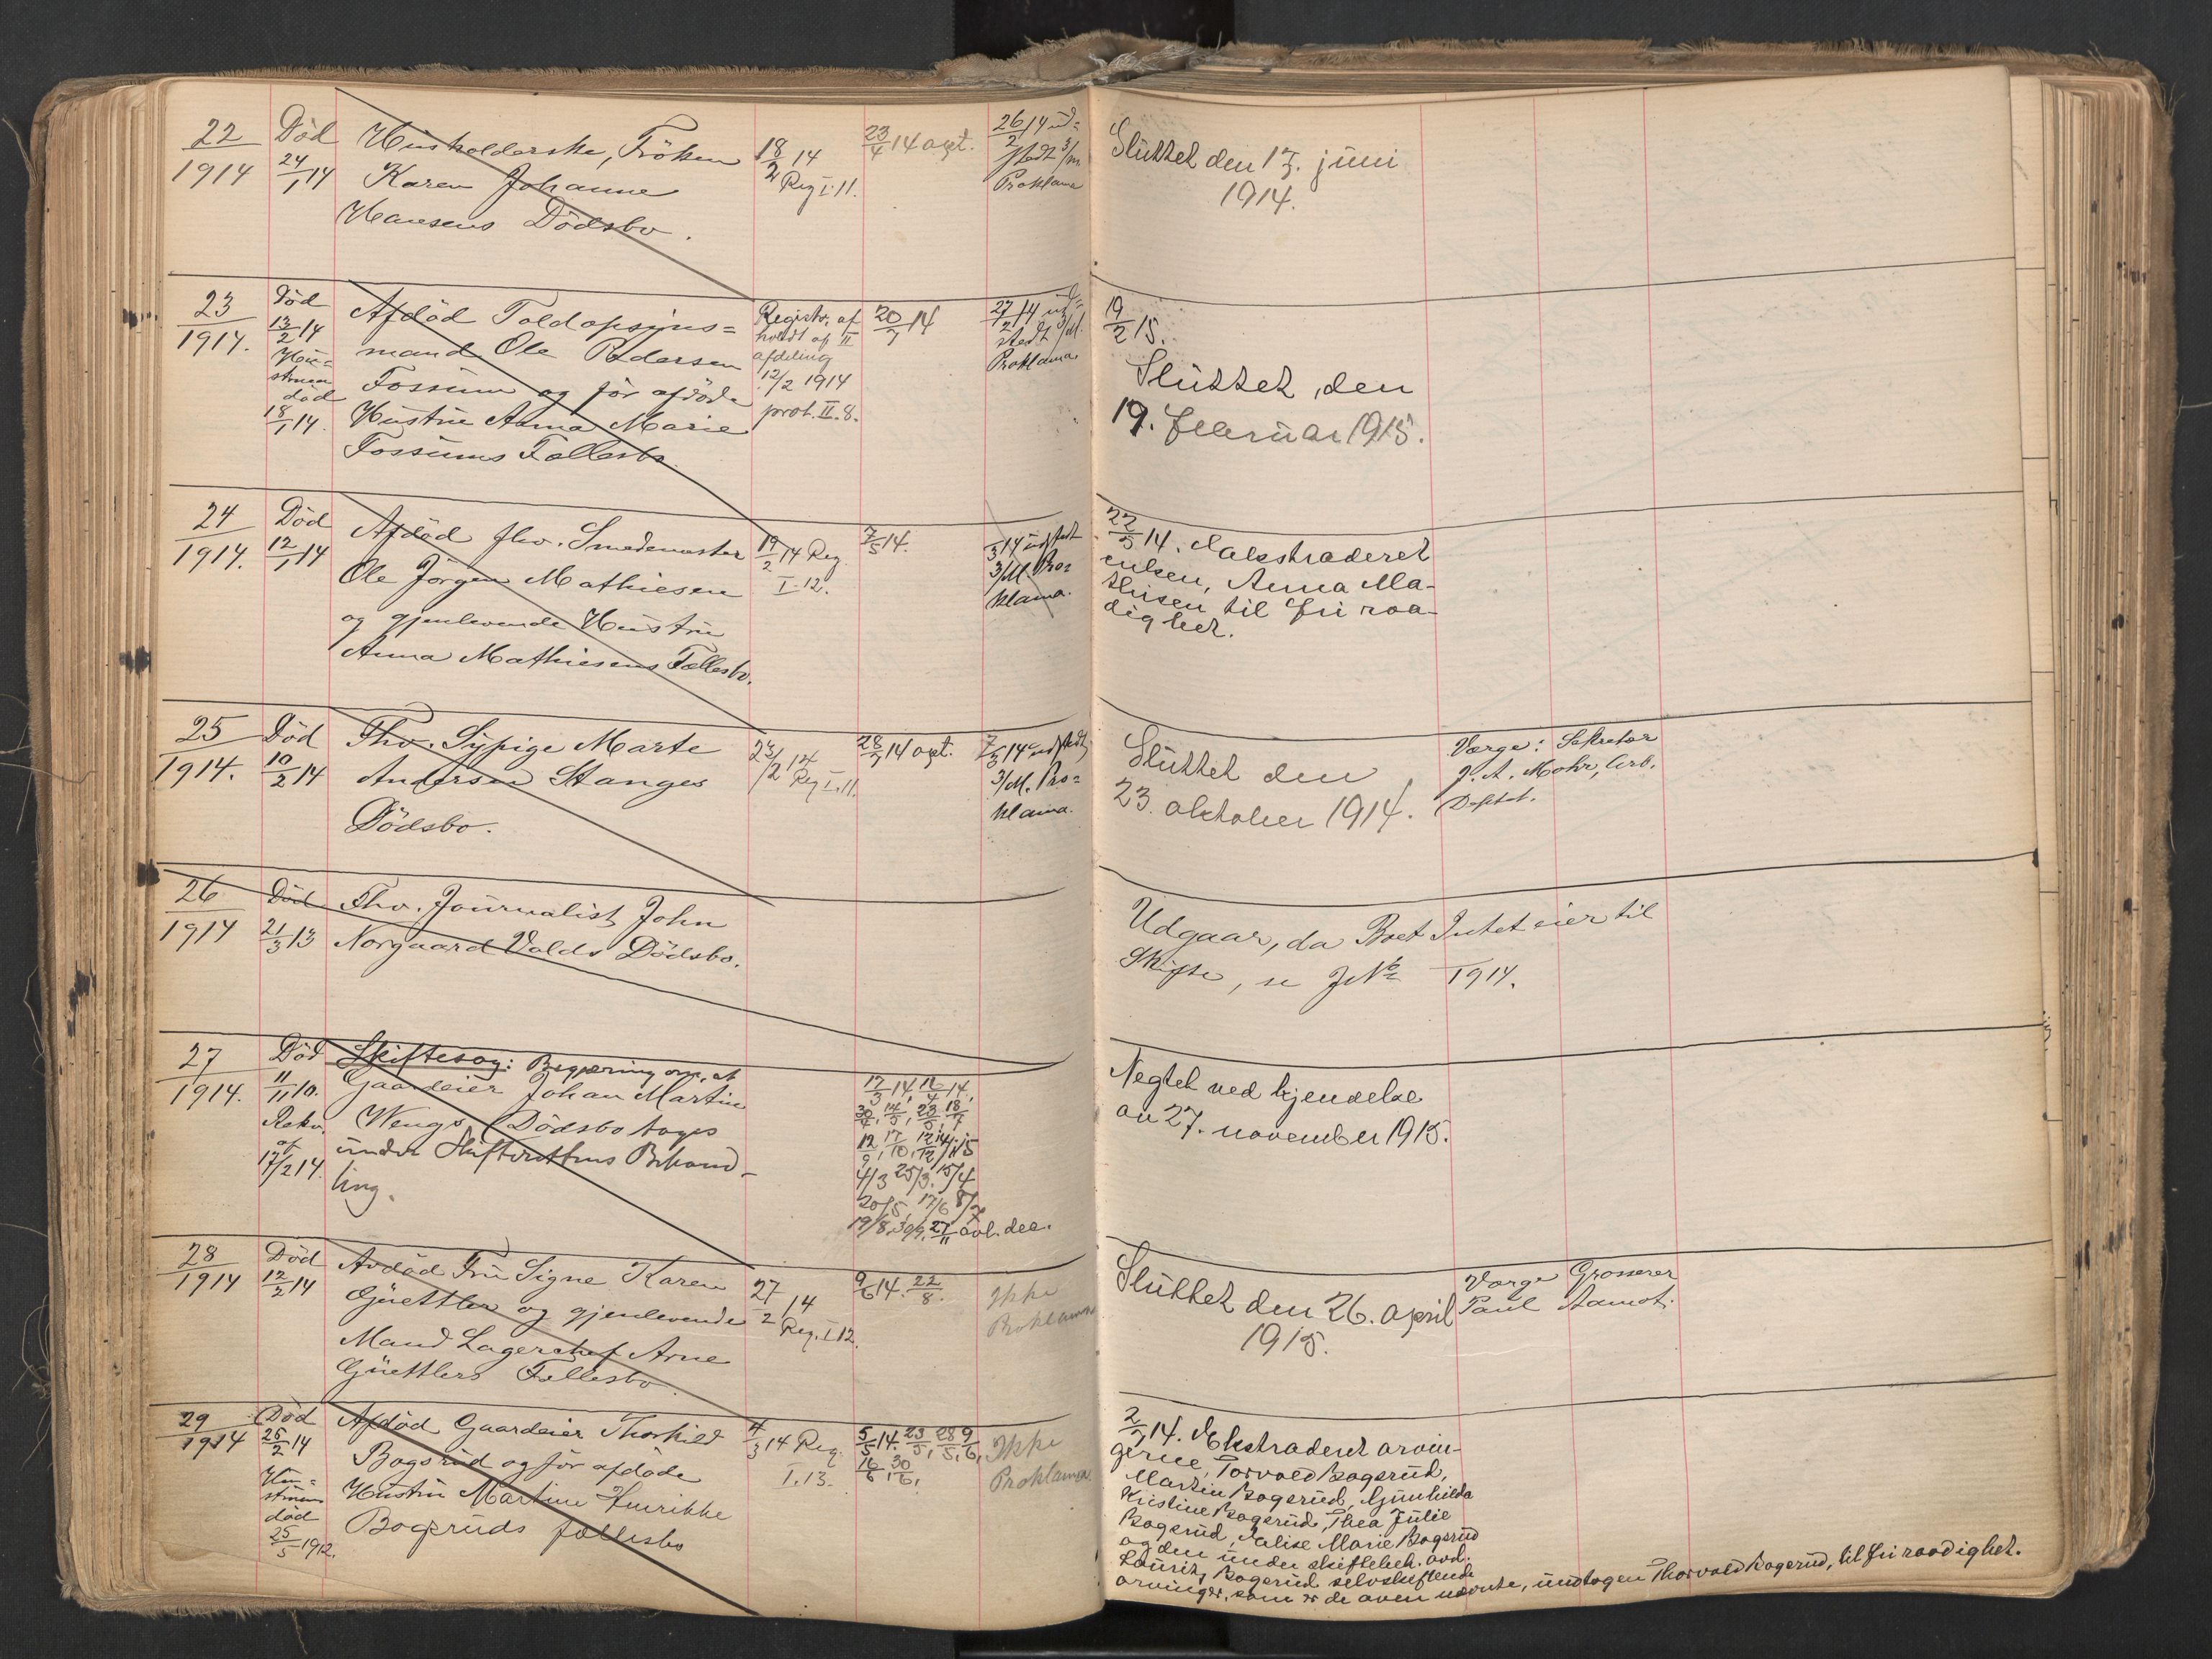 22
1914
Död
24/1 14
Husholderske, Fröken
Karen Johanne
Hansens Dödsbo.
18/2 14
Reg I. 11.
23/4 14 opt.
26/2 14 ud=
stedt 3/m.
Proklama
Sluttet den 17. juni
1914.
23
1914.
Död
13/2 14
Hu=
struen
död
18/1 14.
Afdöd Toldopsyns=
mand Ole Pedersen
Fossum og för afdöde
Hustru Anna Marie
Fossums Fællesbo.
Registr. af
holdt af II
afdeling
12/2 1914
prot. II. 8.
20/7 14
27/2 14 ud=
stedt 3/M.
Proklama.
19/2 15.
Sluttet den
19. februar 1915.
24
1914.
Död
12/1 14
Afdöd fhv. Smedemester
Ole Jörgen Mathiesen
og gjenlevende Hustru
Anna Mathiesens Fællesbo.
19/2 14 Reg.
I. 12.
7/5 14.
/3 14 udstedt
3/M. Pro=
klama.
22/5 14. Ekstraderet
enken, Anna Ma-
thisen til fri raa-
dighet.
25
1914.
Död
10/2 14
Fhv. Sypige Marte
Andersen Stanges
Dödsbo.
23/2 14
Reg I. 11.
28/7 14 opt.
7/3 14 udstedt
3/M. Pro=
klama.
Sluttet den
23. oktober 1914.
Værge: Sekretær
J. A. Mohr, Arb.
Deptet.
26
1914
Död
21/3 13
Fhv. Journalist John
Norgaard Volds Dödsbo.
Udgaar, da Boet Intet eier til
Skifte, se J№ 1914.
27
1914.
Död
11/11 10.
Rekv.
af
17/2 14.
Skiftesag: Begjæring om, at
Gaardeier Johan Martin
Wengs Dödsbo tages
under Skifterettens Behand-
ling.
17/3 14, 16/4 14,
30/4, 14/5, 23/5, 18/7
12/9, 17/10, 12/12 14, /1 15
4/3 25/3. 15/4
20/5, 17/6 8/7
19/8, 30/9, 27/11 avl. dec.
Negtet ved kjendelse
av 27. november 1915.
28
1914
Död
12/2 14
Avdöd Fru Signe Karen
Güettler og gjenlevende
Mand Lagerchef Arne
Güettlers Fællesbo.
27/2 14
Reg. I 12.
9/6 14. 22/8.
Ikke
Proklama
Sluttet den 26. april
1915.
Værge Grosserer
Paul Aamot.
29
1914
Död
26/2 14
Hu=
struen
död
25/5 1912.
Afdöd Gaardeier Thorkild
Bogsrud og för afdöde
Hustru Martine Henrikke
Bogsruds fællesbo
4/3 14 Reg.
I. 13.
5/5 14. 23/5, 28/5, 9/6,
16/6, 30/6.
Ikke
Proklama.
2/7 14. Ekstraderet arvin-
gerne, Torvald Bogsrud,
Martin Bogsrud, Gunhilda
Kristine Bogsrud, Thea Julie
Bogsrud, Valise Marie Bogsrud
og den under skiftebeh. avd.
Lauritz Bogsrud selvskiftende
arvinger, som er de oven nævnte, undtagen Thorvald Bogsrud, til fri raadighet.